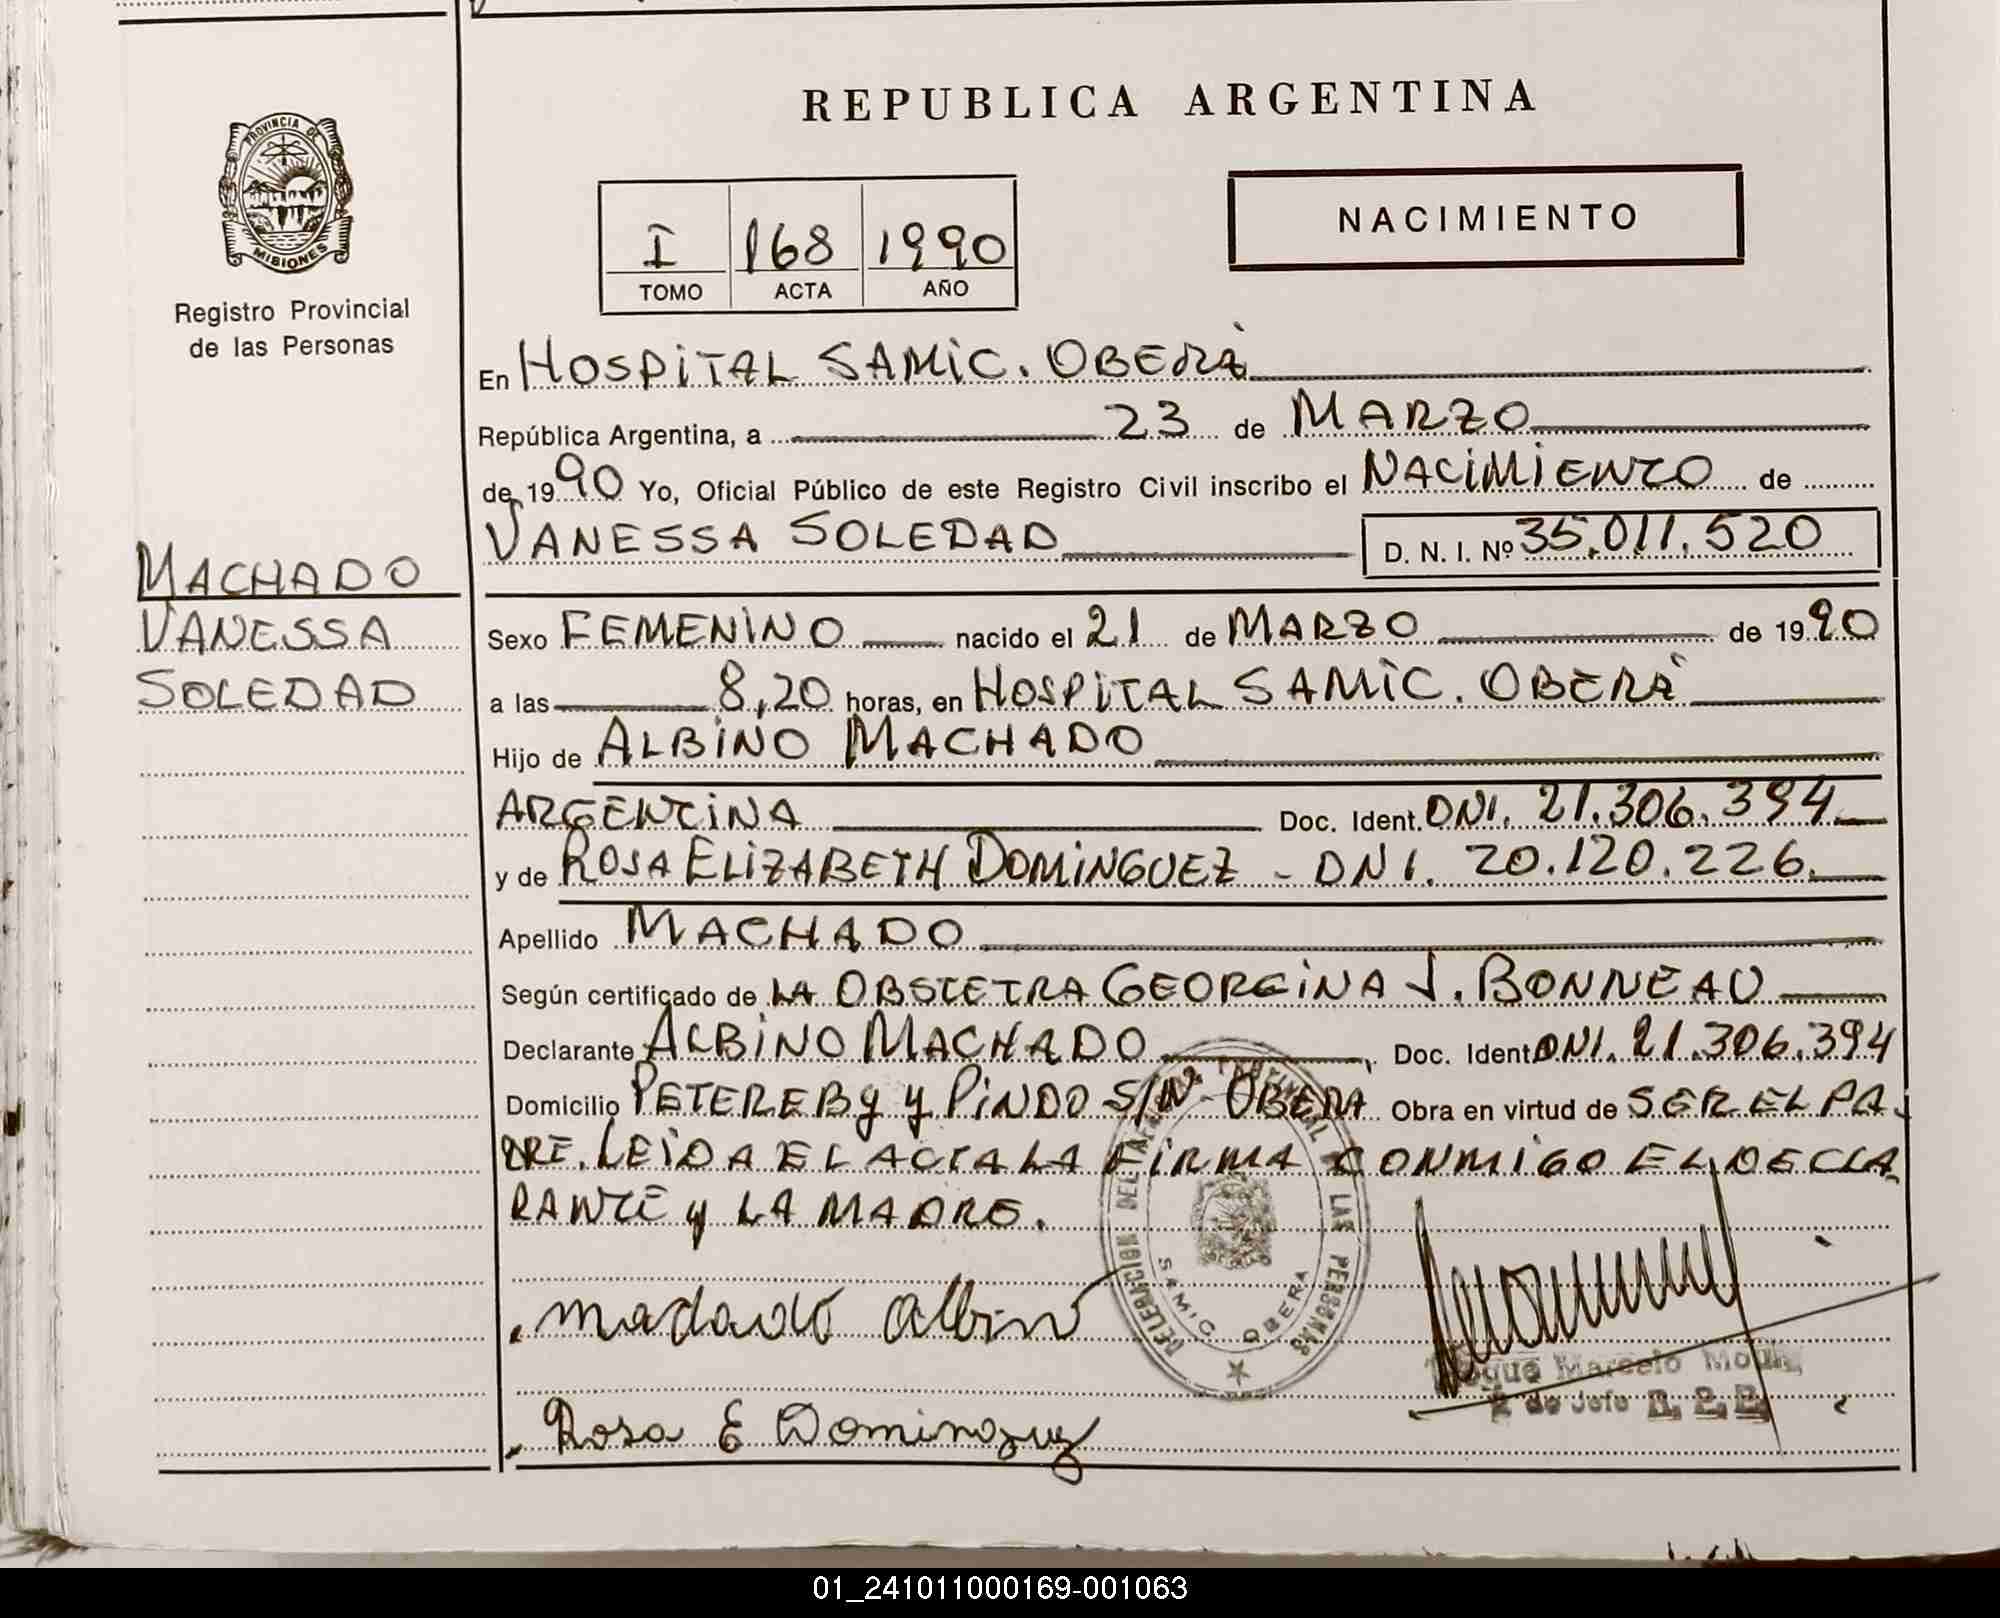 REPUBLICA ARGENTINA
PROVINCIA DE MISIONES
Registro Provincial
de las Personas
NACIMIENTO
I 168 1990
TOMO ACTA AÑO
En HOSPITAL SAMIC. OBERÁ
República Argentina, a 23 de MARZO
de 1990 Yo, Oficial Público de este Registro Civil inscribo el NACIMIENTO de
VANESSA SOLEDAD D. N. I. Nº 35.011.520
MACHADO
VANESSA
SOLEDAD
Sexo FEMENINO nacido el 21 de MARZO de 1990
a las 8,20 horas, en HOSPITAL SAMIC. OBERÁ
Hijo de ALBINO MACHADO
ARGENTINA Doc. Ident. DNI. 21.306.394
y de ROSA ELIZABETH DOMINGUEZ - DNI. 20.120.226.
Apellido MACHADO
Según certificado de LA OBSTETRA GEORGINA J. BONNEAU
Declarante ALBINO MACHADO, Doc. Ident DNI. 21.306.394
Domicilio PETEREBY y PINDO S/Nº OBERA Obra en virtud de SER EL PA-
DRE. LEIDA EL ACTA LA FIRMA CONMIGO EL DECLA-
RANTE y LA MADRE.
Machado Albino
Rosa E Dominguez
DELEGACION DEL REGISTRO PROVINCIAL DE LAS PERSONAS
SAMIC OBERA
Roque Marcelo
2 de Jefe R. P. P.
01_241011000169-001063